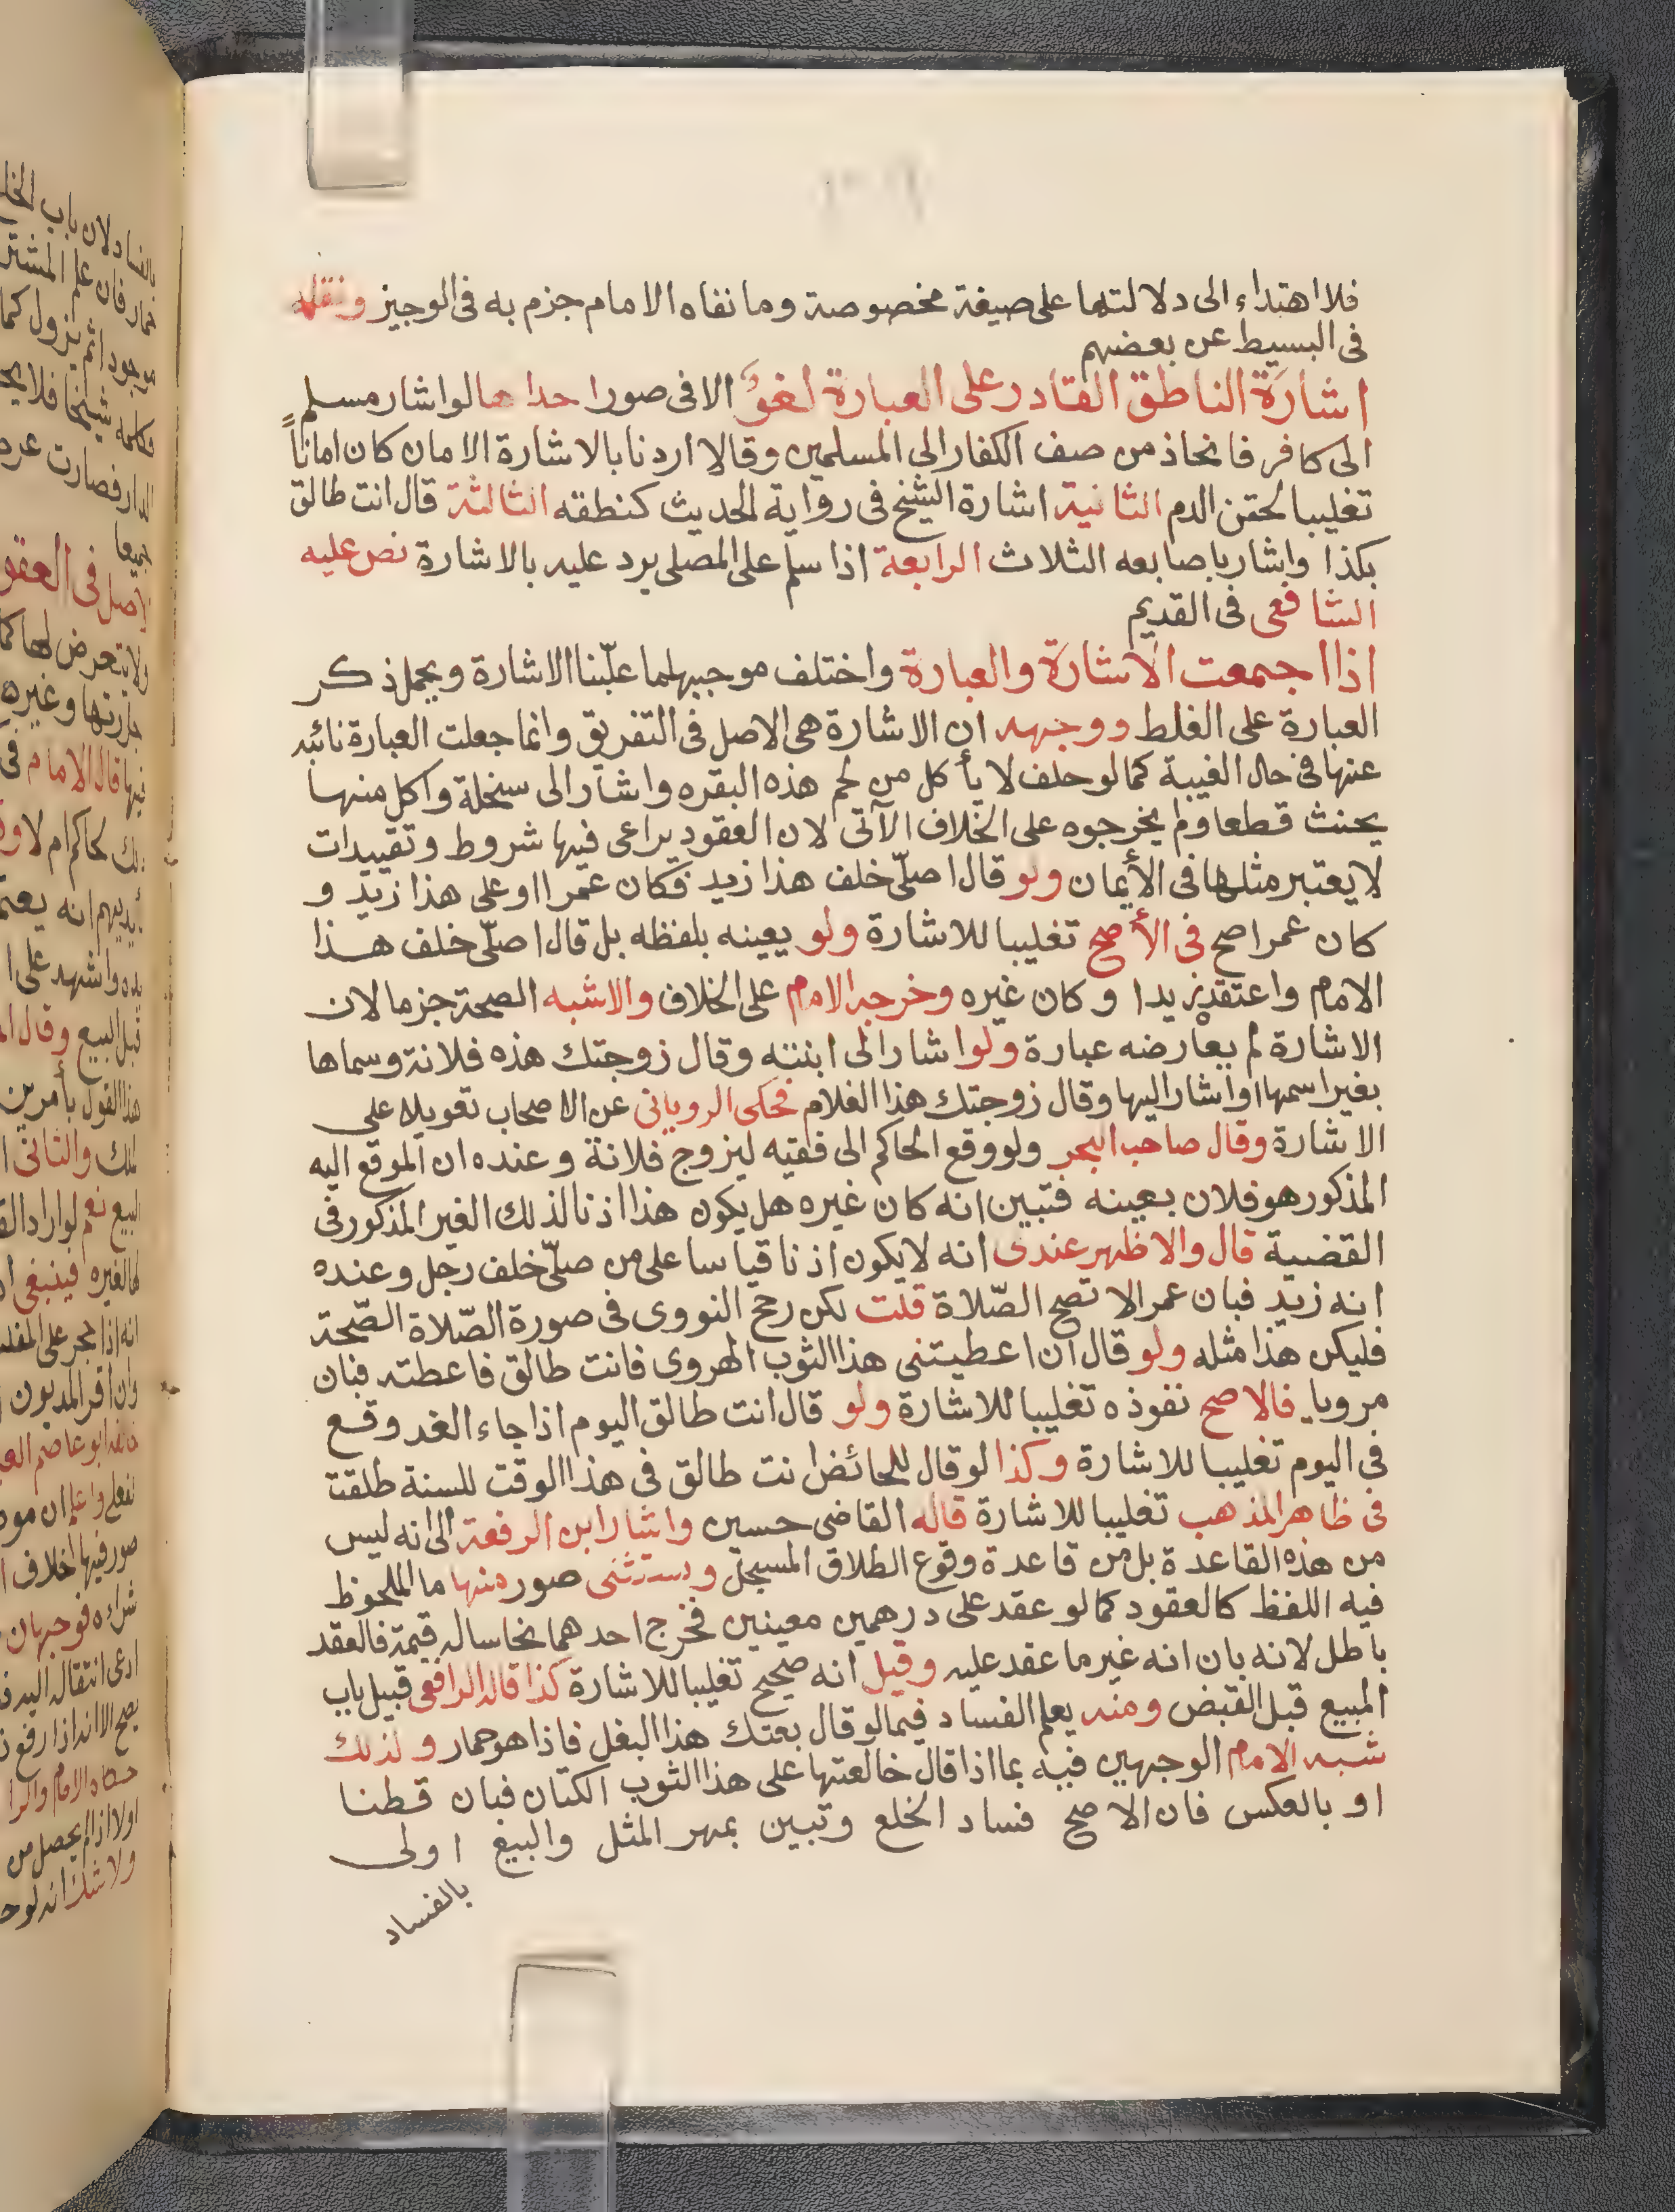 فلا اهتداء الى دلالتهما على صيغة مخصوصة وما نفاه الامام جزم به فى الوجيز ونقله
فى البسيط عن بعضهم
اشارة الناطق القادر على العبارة لغوٌ الا فى صور احداها لو اشار مسلم
الى كافر فانحاذ من صف الكفار الى المسلمين وقالا اردنا بالاشارة الامان كان اماناً
تغليبا لحقن الدم الثانية اشارة الشيخ فى رواية الحديث كنطقه الثالثة قال انت طالق
بكذا واشار باصابعه الثلاث الرابعة اذا سلم على المصلى يرد عليه بالاشارة نص عليه
الشافعى فى القديم
اذا اجتمعت الاشارة والعبارة واختلف موجبهما غلّبنا الاشارة ويحمل ذكر
العبارة على الغلط ووجهه ان الاشارة هى الاصل فى التفريق وانما جعلت العبارة نائبه
عنها فى حال الغيبة كما لو حلف لا يأكل من لحم هذه البقره واشار الى سخلة واكل منها
يحنث قطعا ولم يخرجوه على الخلاف الآتى لان العقود يراعى فيها شروط وتقييدات
لا يعتبر مثلها فى الأيمان ولو قال اصلّى خلف هذا زيد فكان عمرا او على هذا زيد و
كان عمرا صح فى الأصح تغليبا للاشارة ولو يعينه بلفظه بل قال اصلّى خلف هذا
الامام واعتقده زيدا وكان غيره وخرجه الامام على الخلاف والاشبه الصحة جزما لان
الاشارة لم يعارضه عبارة ولو اشار الى ابنته وقال زوجتك هذه فلانة وسماها
بغير اسمها او اشار اليها وقال زوجتك هذا الغلام فحكى الرويانى عن الاصحاب تعويلا على
الاشارة وقال صاحب البحر ولو وقع الحاكم الى فقيه ليزوج فلانة وعنده ان الموقع اليه
المذكور هو فلان بعينه فتبين انه كان غيره هل يكون هذا اذنا لذلك الغير المذكور فى
القضية قال والاظهر عندى انه لا يكون اذنا قياسا على من صلّى خلف رجل وعنده
انه زيد فبان عمرا لا تصح الصّلاة قلت لكن رجح النووى فى صورة الصّلاة الصّحة
فليكن هذا مثله ولو قال ان اعطيتنى هذا الثوب الهروى فانت طالق فاعطته فبان
مرويا فالاصح نفوذه تغليبا للاشارة ولو قال انت طالق اليوم اذا جاء الغد وقع
فى اليوم تغليبا للاشارة وكذا لو قال للحائض انت طالق فى هذا الوقت للسنة طلقت
فى ظاهر المذهب تغليبا للاشارة قاله القاضى حسين واشار ابن الرفعة الى انه ليس
من هذه القاعدة بل من قاعدة وقوع الطلاق المسجل ويستثنى صور منها ما الملحوظ
فيه اللفظ كالعقود كما لو عقد على درهمين معينين فخرج احدهما نحاسا له قيمة فالعقد
باطل لانه بان انه غير ما عقد عليه وقيل انه صحيح تغليبا للاشارة كذا قاله الرافعى قبيل باب
المبيع قبل القبض ومنه يعلم الفساد فيما لو قال بعتك هذا البغل فاذا هو حمار ولذلك
شبه الامام الوجهين فيه بما اذا قال خالعتها على هذا الثوب الكتان فبان قطنا
او بالعكس فان الاصح فساد الخلع وتبين بمهر المثل والبيع اولى
بالفساد